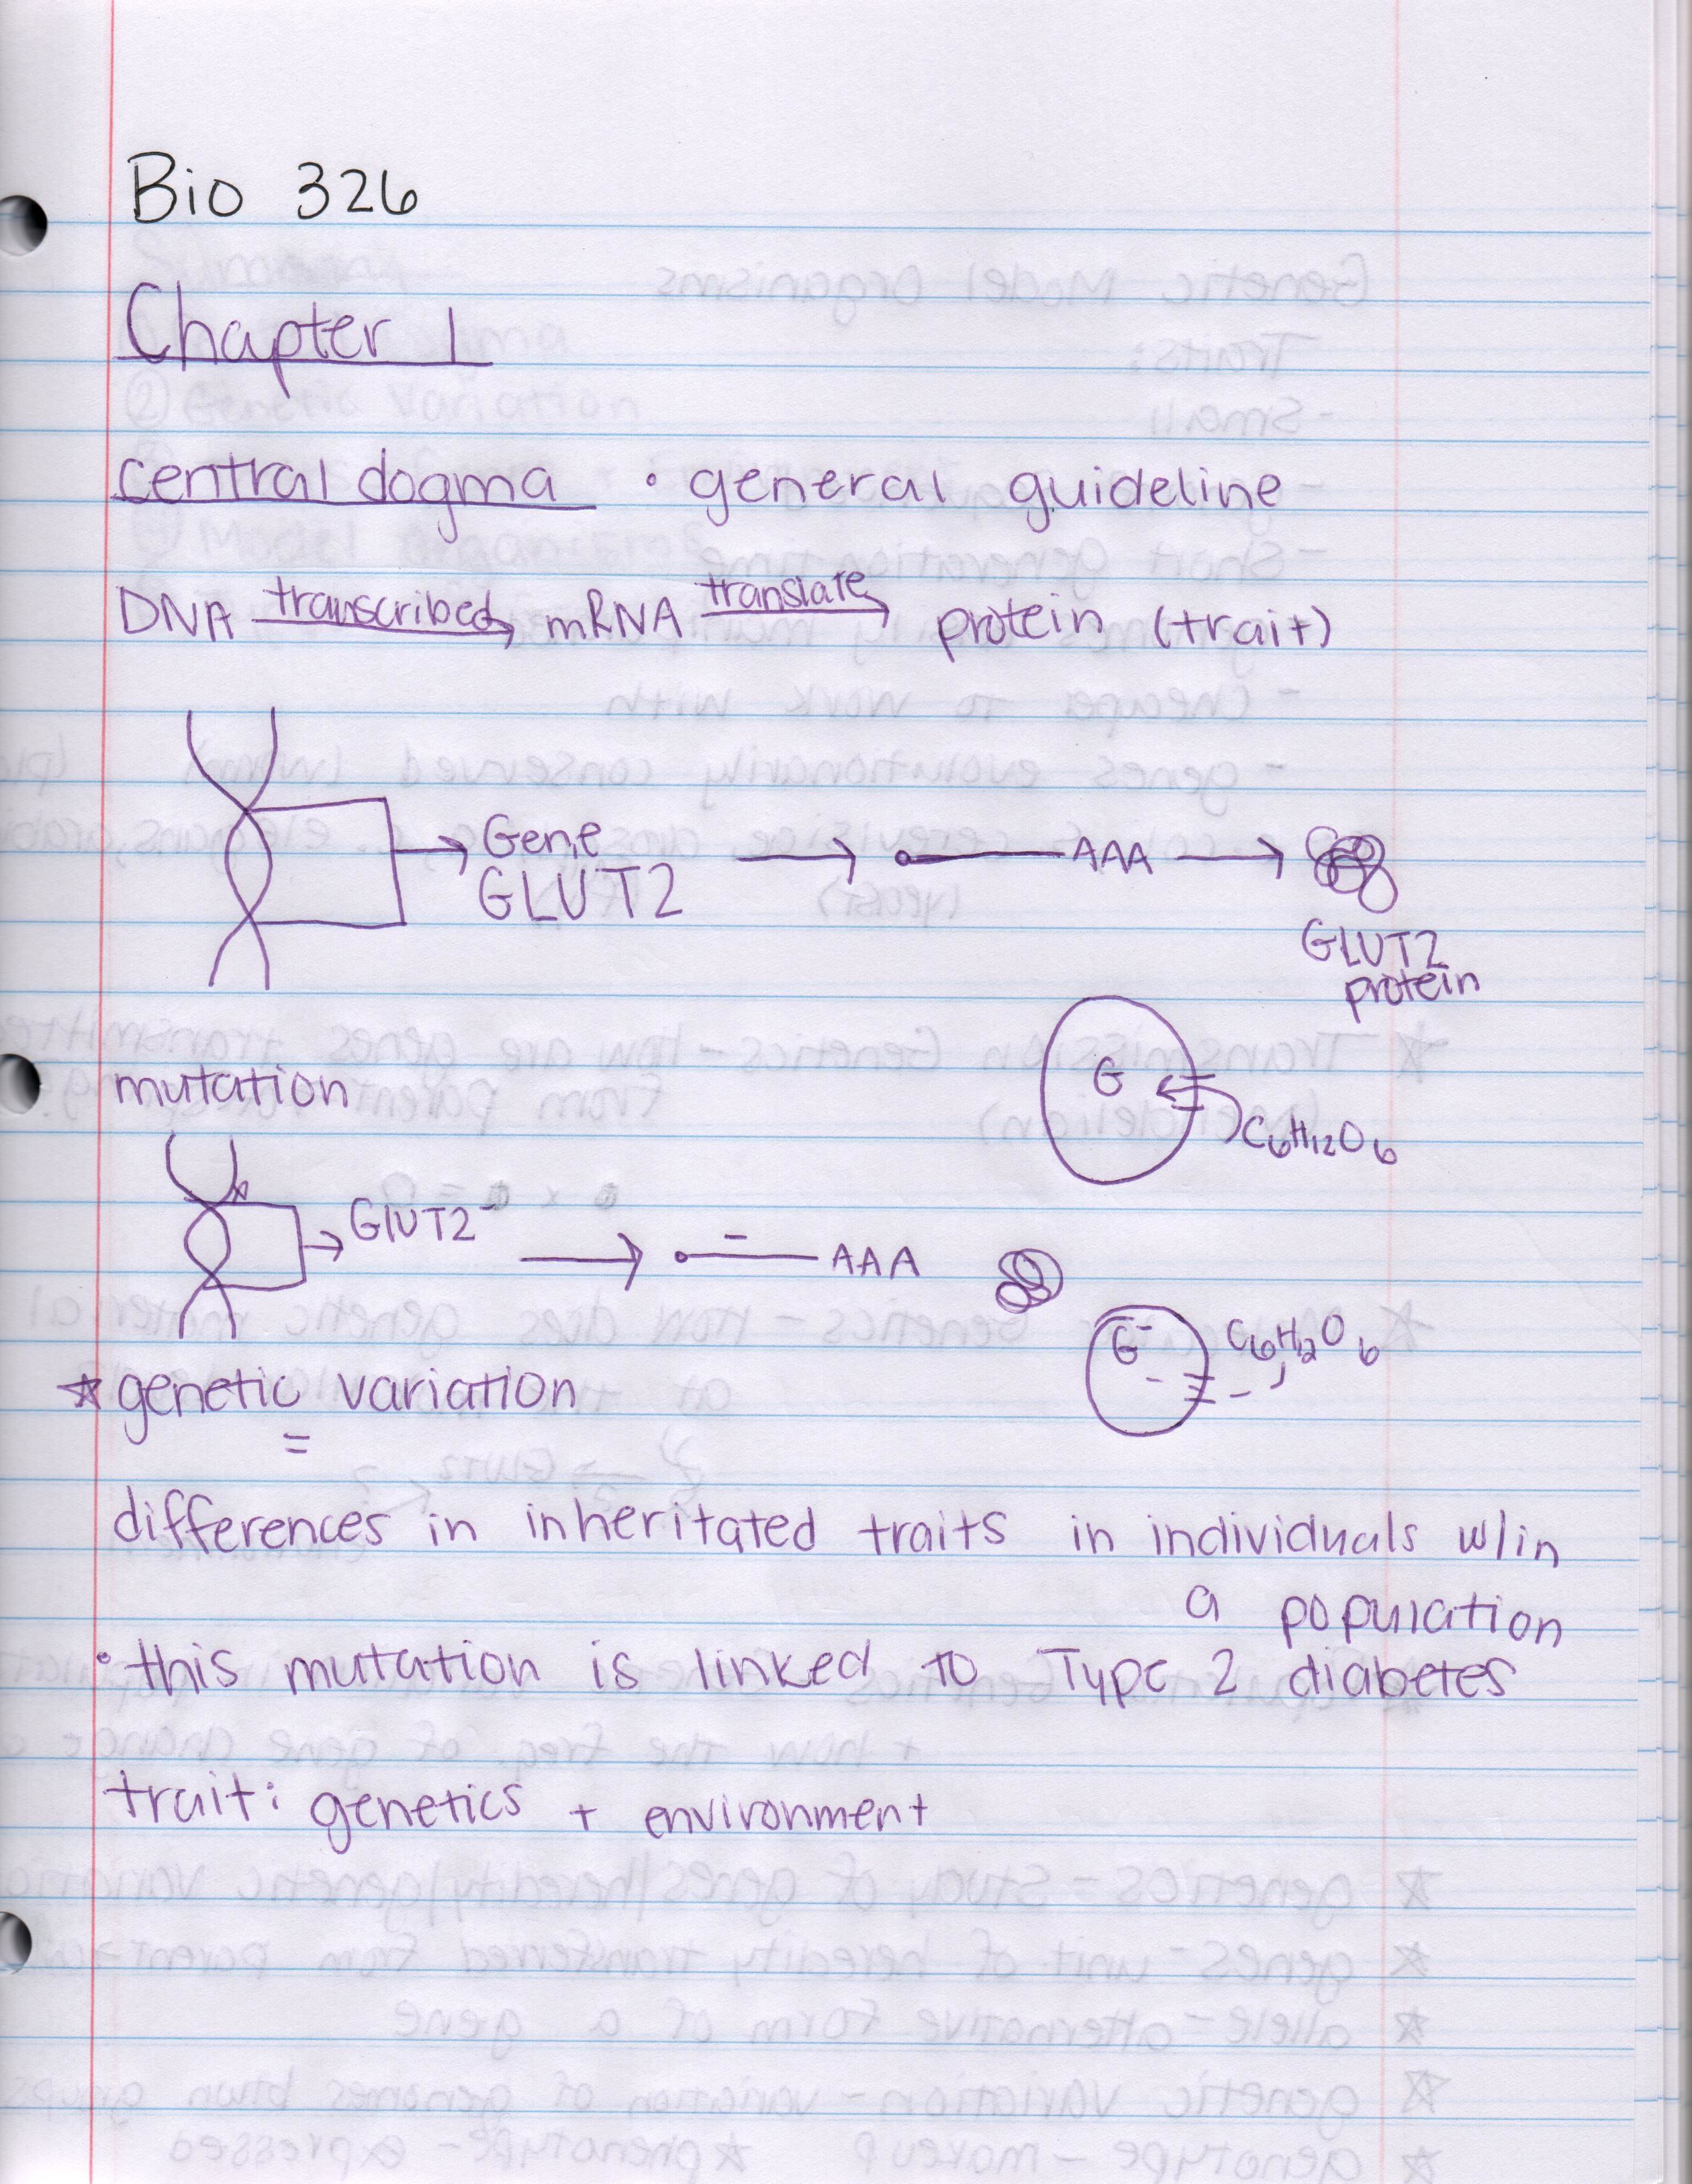 Bio 326
Chapter 1
central dogma • general guideline
DNA transcribed→ mRNA translate→ protein (trait)
Gene
GLUT2 → AAA →
GLUT2
protein
mutation
G
C6H12O6
GlUT2⁻ → - AAA
G⁻ C6H12O6
☆ genetic variation
=
differences in inheritated traits in individuals w/in
a population
• this mutation is linked to Type 2 diabetes
trait: genetics + environment